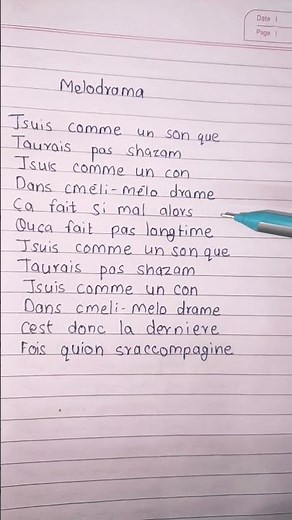 Date
Page
Melodrama
Jsuis comme un son que
Taurais pas shazam
Jsuis comme un con
Dans cméli-mélo drame
Ca fait si mal alors
Quca fait pas longtime
Jsuis comme un son que
Taurais pas shazam
Jsuis comme un con
Dans cmeli-melo drame
Cest donc la derniere
Fois quion sraccompagine